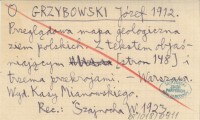 O GRZYBOWSKI Józef 1912.
Przeglądowa mapa geologiczna
ziem polskich z tekstem objaś-
niającym [stron 148] i
trzema przekrojami. Warszawa.
Wyd. Kasy Mianowskiego.
Rec.: Szajnocha W. 1923.